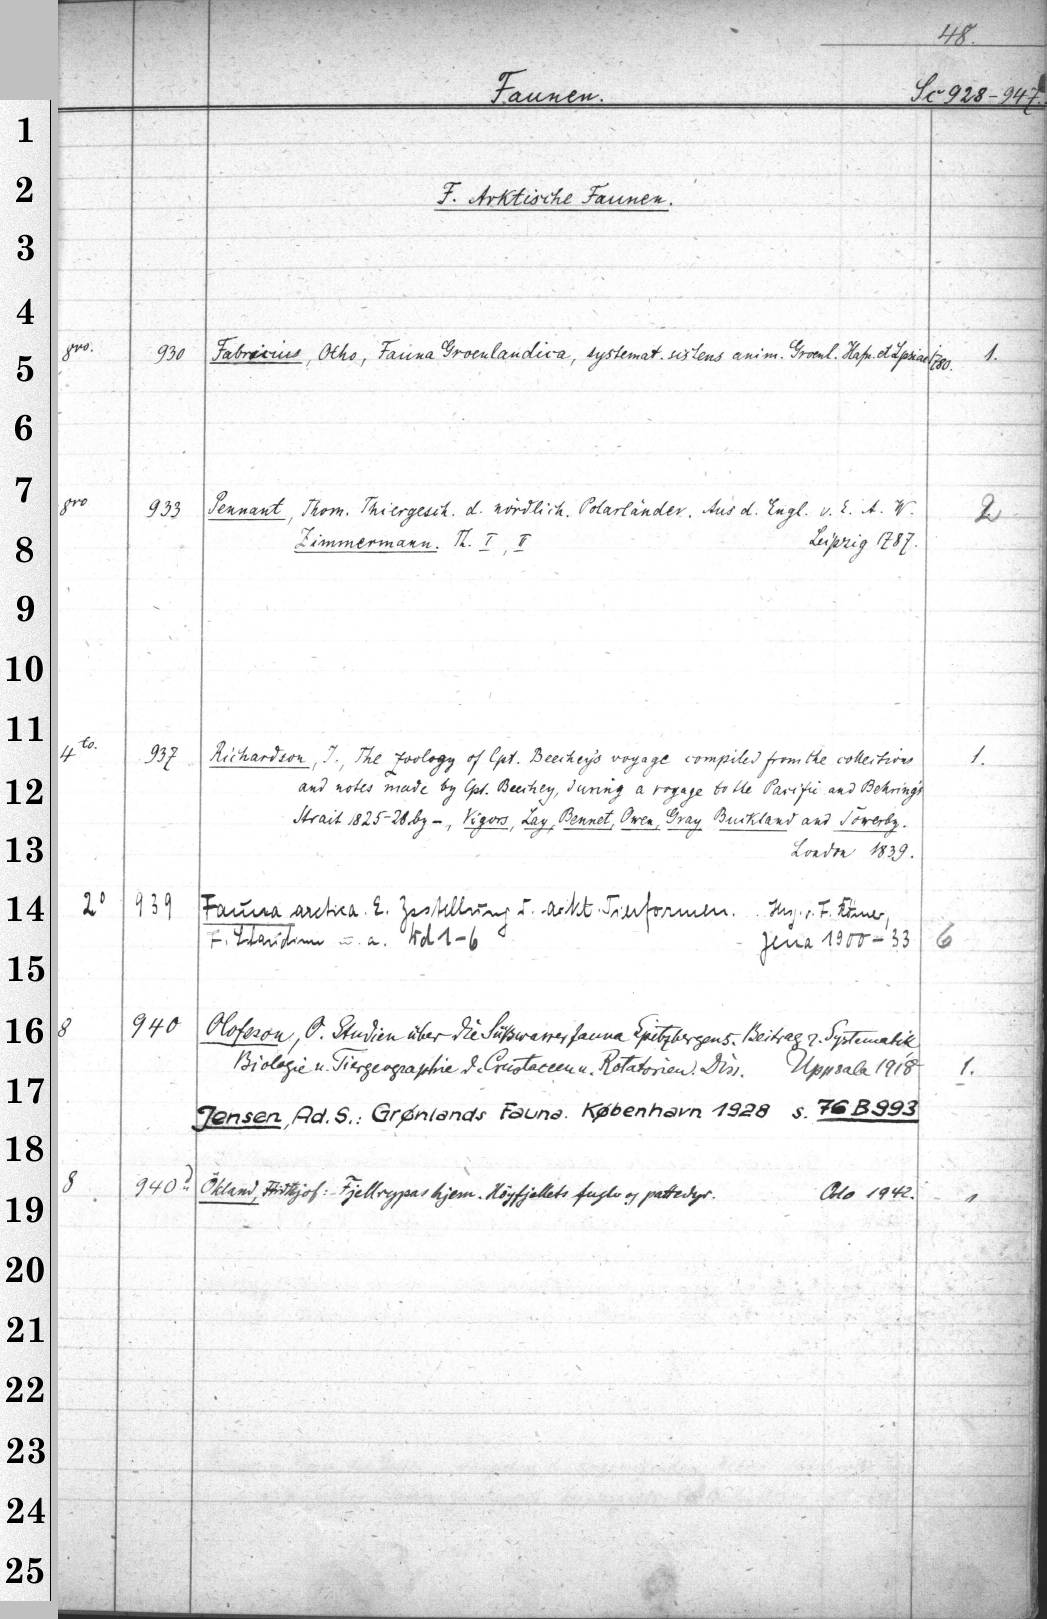 48.
Faunen. Sc 928-947.
1
2 F. Arktische Faunen.
3
4
5 8vo. 930 Fabricius, Otho, Fauna Groenlandica, systemat. sistens anim. Groenl. Hafn. et Lpsiae 1780. 1.
6
7 8vo 933 Pennant, Thom. Thiergesch. d. nördlich. Polarländer. Aus d. Engl. v. E. A. W. 2
8 Zimmermann. Th. I, II Leipzig 1787.
9
10
11 4to. 937 Richardson, J., The zoology of Cpt. Beechey's voyage compiled from the collections 1.
12 and notes made by Cpt. Beechey, during a voyage to the Pacific and Behring's
13 Strait 1825-28 by -, Vigors, Lay, Bennet, Owen, Gray, Buckland and Sowerby.
London 1839.
14 2° 939 Fauna arctica. E. Zsstellung d. arkt. Tierformen. Hrsg. v. F. Römer,
F. Schaudinn u. a. Bd 1-6 Jena 1900-33 6
15
16 8 940 Olofsson, O. Studien über die Süßwasserfauna Spitzbergens. Beitrag z. Systematik
Biologie u. Tiergeographie d. Crustaceen u. Rotatorien. Diss. Uppsala 1918 1.
17 Jensen, Ad. S.: Grønlands Fauna. København 1928 s. 76 B 993
18
19 8 940 Ökland, Fridthjof: Fjellrypas hjem. Höyfjellets fugler og pattedyr. Oslo 1942. 1
20
21
22
23
24
25